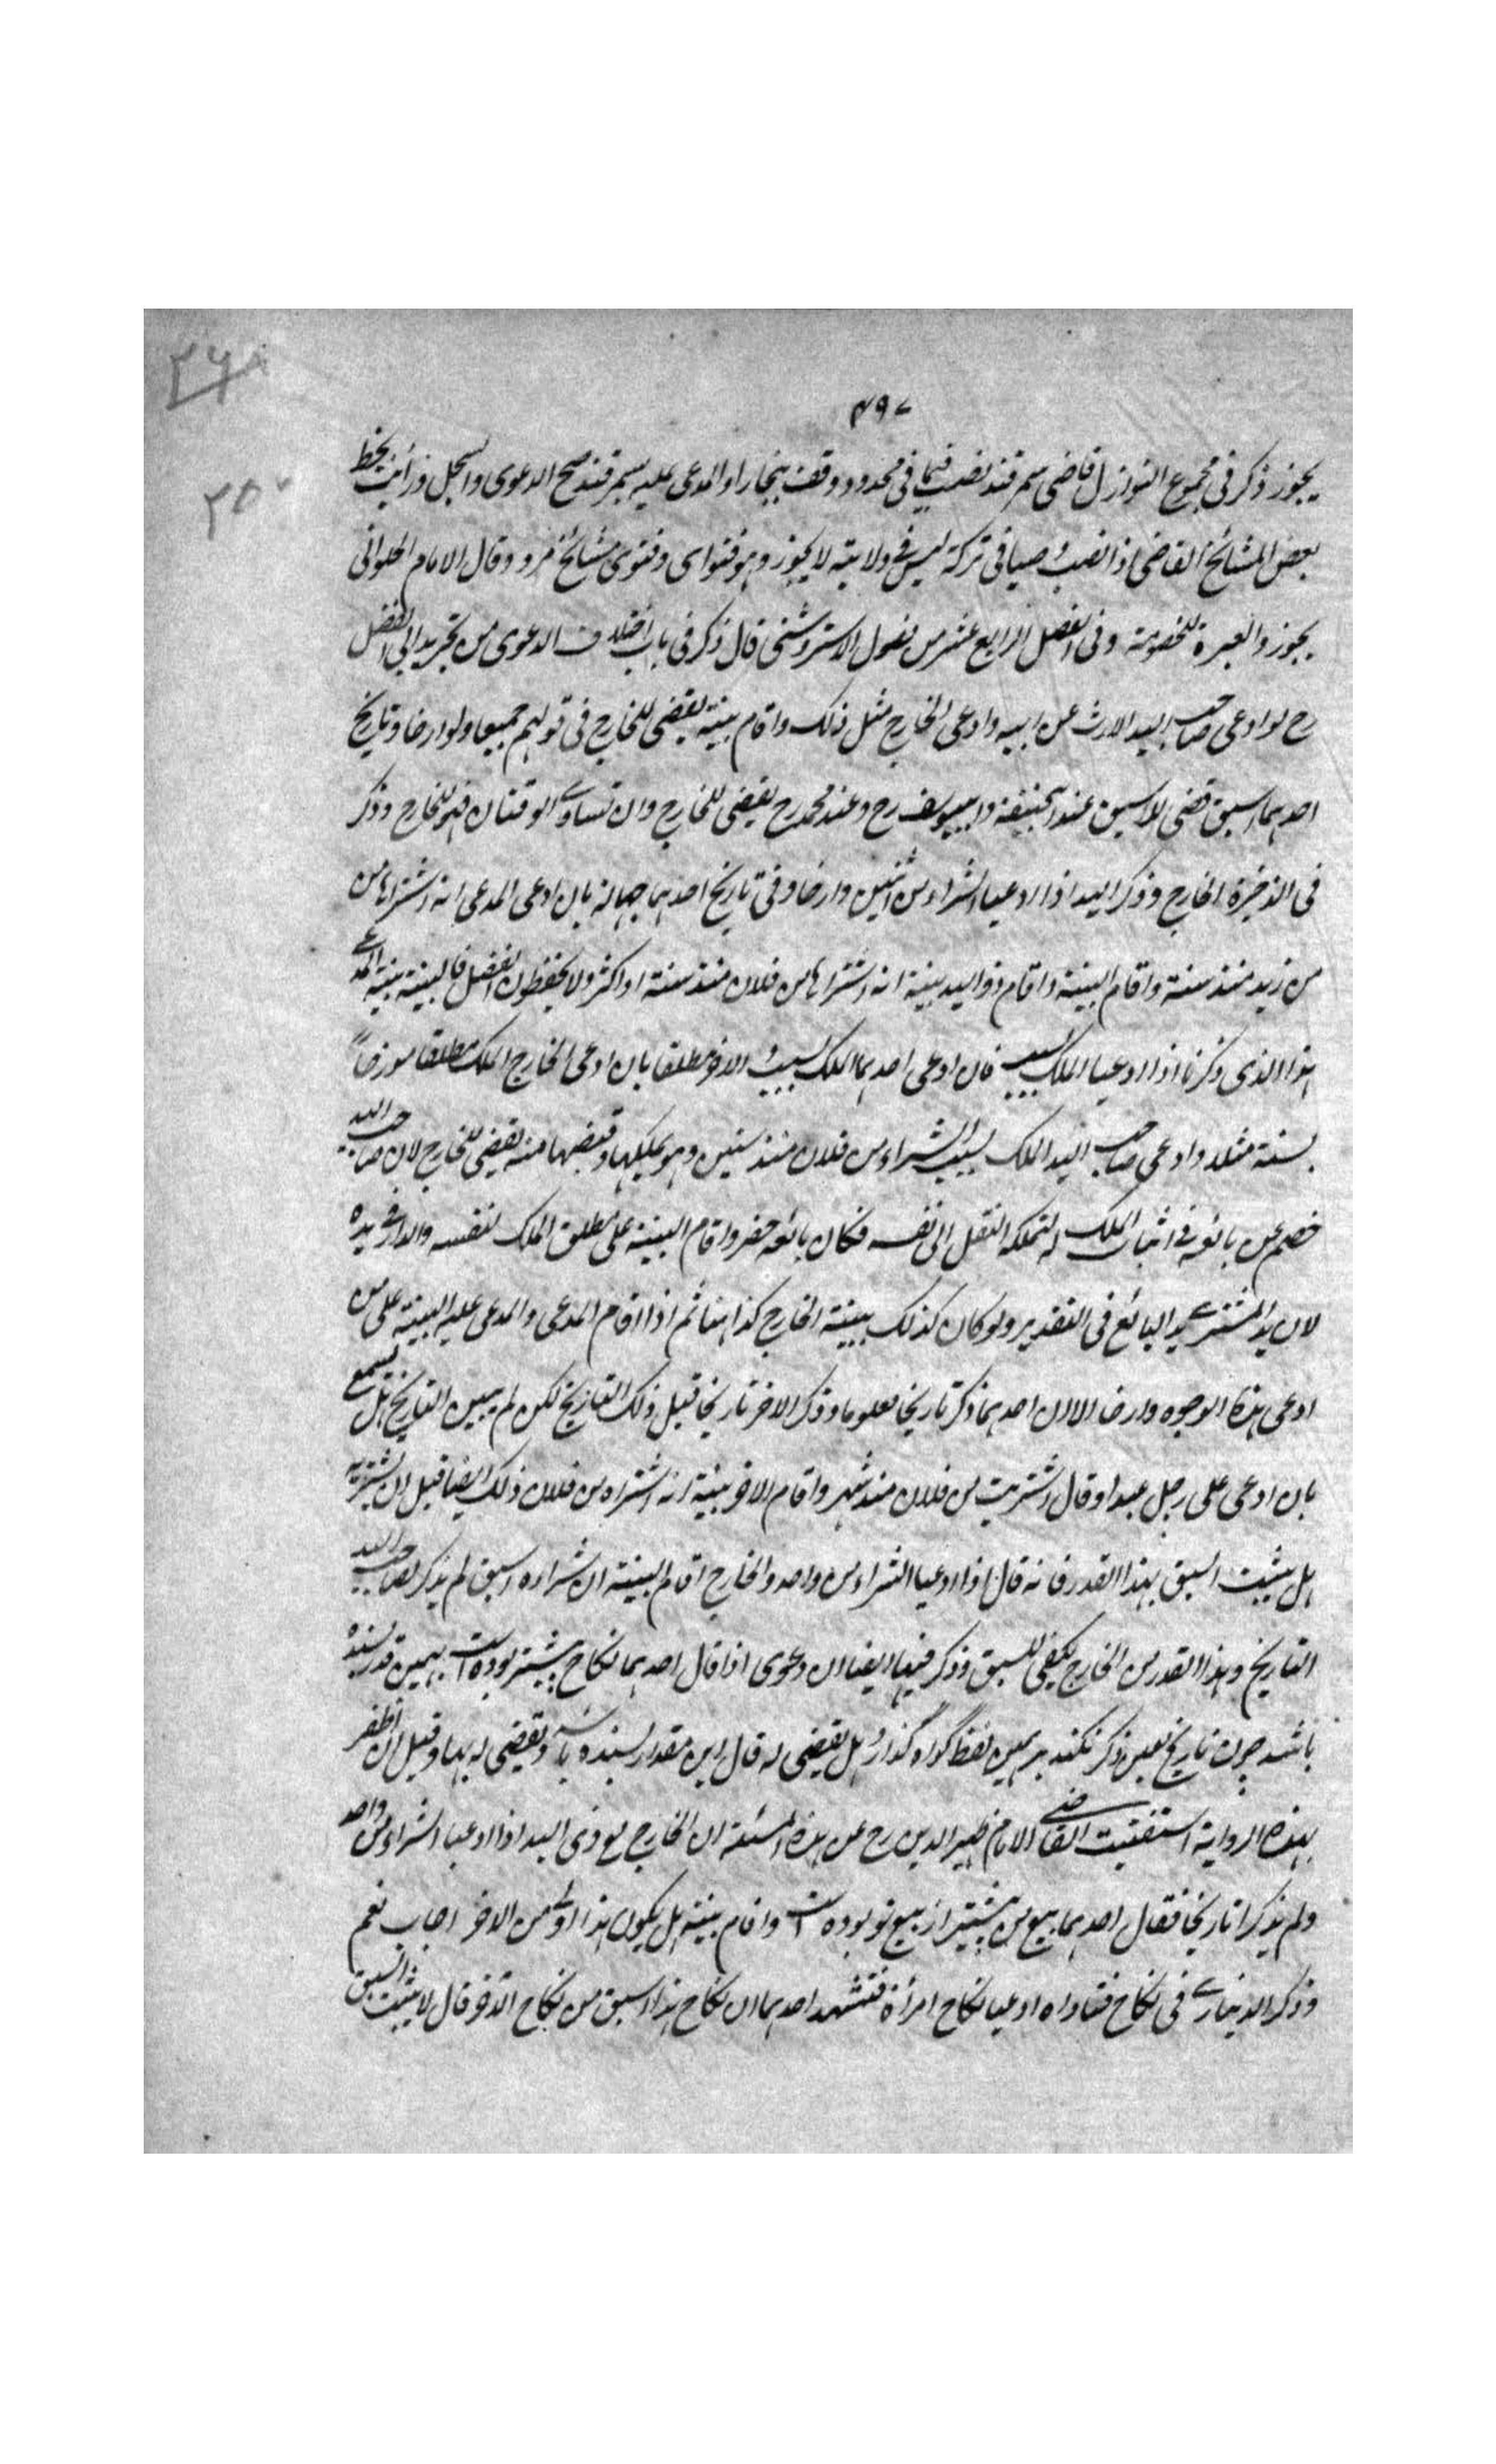 ۴۹۷
یجوز ذکر فی مجموع النوازل قاضی سمرقند نصب قیما فی محدود وقف ببخارا والمدعی علیه بسمرقند صح الدعوی والسجل ورأیت بخط
بعض المشائخ القاضی اذا نصب وصیا فی ترکة لیس فی ولایته لا یجوز وهو فتوای وفتوی مشائخ مرو وقال الامام الحلوانی
یجوز والعبرة للخصومة وفی الفصل الرابع عشر من فصول الاستروشنی قال ذکر فی باب اختلاف الدعوی من تجرید ابی الفضل
رح لو ادعی صاحب الید الارث عن ابیه وادعی الخارج مثل ذلک واقام بینة یقضی للخارج فی قولهم جمیعا ولو ارخا وتاریخ
احدهما اسبق قضی لاسبق عند ابحنیفة وابیوسف رح وعند محمد رح یقضی للخارج وان تساوی الوقتان فهو للخارج وذکر
فی الذخیرة الخارج وذکر الید اذا ادعیا الشراء من اثنین وارخا وفی تاریخ احدهما جهالة بان ادعی المدعی انه اشتراها من
من زید منذ سنة واقام البینة واقام ذو الید بینة انه اشتراها من فلان منذ سنة او اکثر ولا یحفظون الفضل فالبینة بینة المدعی
هذا الذی ذکرنا اذا ادعیا الملک بسبب فان ادعی احدهما الملک بسبب والاخر مطلقا بان ادعی الخارج الملک مطلقا مورخاً
بسنة مثلا وادعی صاحب الید الملک بسبب الشراء من فلان منذ سنین وهو یملکها وقبضها منه یقضی للخارج لان صاحب الید
خصم عن بائعه فی اثبات الملک له لتملکه النقل الی نفسه فکان بائعه حضر واقام البینة علی مطلق الملک لنفسه والدار فی یده
لان ید المشتری ید البائع فی التقدیر ولو کان کذلک ببینة الخارج کذا هنا ثم اذا اقام المدعی والمدعی علیه البینة علی من
ادعی هذه الوجوه وارخا الا ان احدهما ذکر تاریخا معلوما وذکر الاخر تاریخا قبل ذلک التاریخ لکن لم یبین التاریخ هل تسمع
بان ادعی علی رجل عبدا وقال اشتریت من فلان منذ شهر واقام الاخر بینة انه اشتراه من فلان ذلک ایضا قبل ان یشتریه
هل یثبت السبق بهذا القدر فانه قال اذا ادعیا الشراء من واحد والخارج اقام البینة ان شراءه اسبق لم یذکر صاحب الید
التاریخ وهذا القدر من الخارج یکفی للسبق وذکر فیها ایضا ان دعوی اذا قال احدهما نکاح پیشتر بوده است بهمین قدر بسنده
باشد چون تاریخ بعین ذکر نکند برهمین لفظ گواه گذارد هل یقضی له قال این مقدار بسنده باشد ویقضی له بها وقبل ان اظفر
بهذه الروایة استفتیت القاضی الامام ظهیر الدین رح عن هذه المسئلة ان الخارج مع ذی الید اذا ادعیا الشراء من واحد
ولم یذکرا تاریخا فقال احدهما بیع من پیشتر از بیع تو بوده است واقام بینة هل یکون هذا اولی من الاخر اجاب نعم
وذکر الدیناری فی نکاح فتاواه ادعیا نکاح امرأة فتشهد احدهما ان نکاح هذا اسبق من نکاح الاخر قال لا یثبت السبق